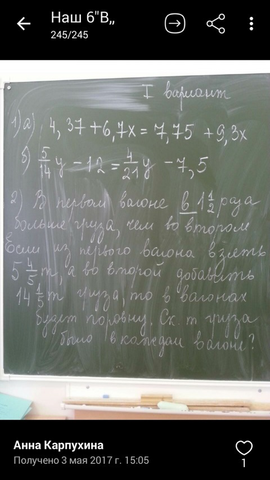 Наш 6"В,,
245/245
I вариант
1) а) 4,37+6,7х=7,75+9,3х
б) 5/14у-12=4/21у-7,5
2) В первом вагоне в 1 1/2 раза
больше груза, чем во втором
Если из первого вагона взять
5 4/5 т, а во второй добавить
14 1/5 т груза, то в вагонах
будет поровну. Ск. т груза
было в каждом вагоне?
Анна Карпухина
Получено 3 мая 2017 г. 15:05
1